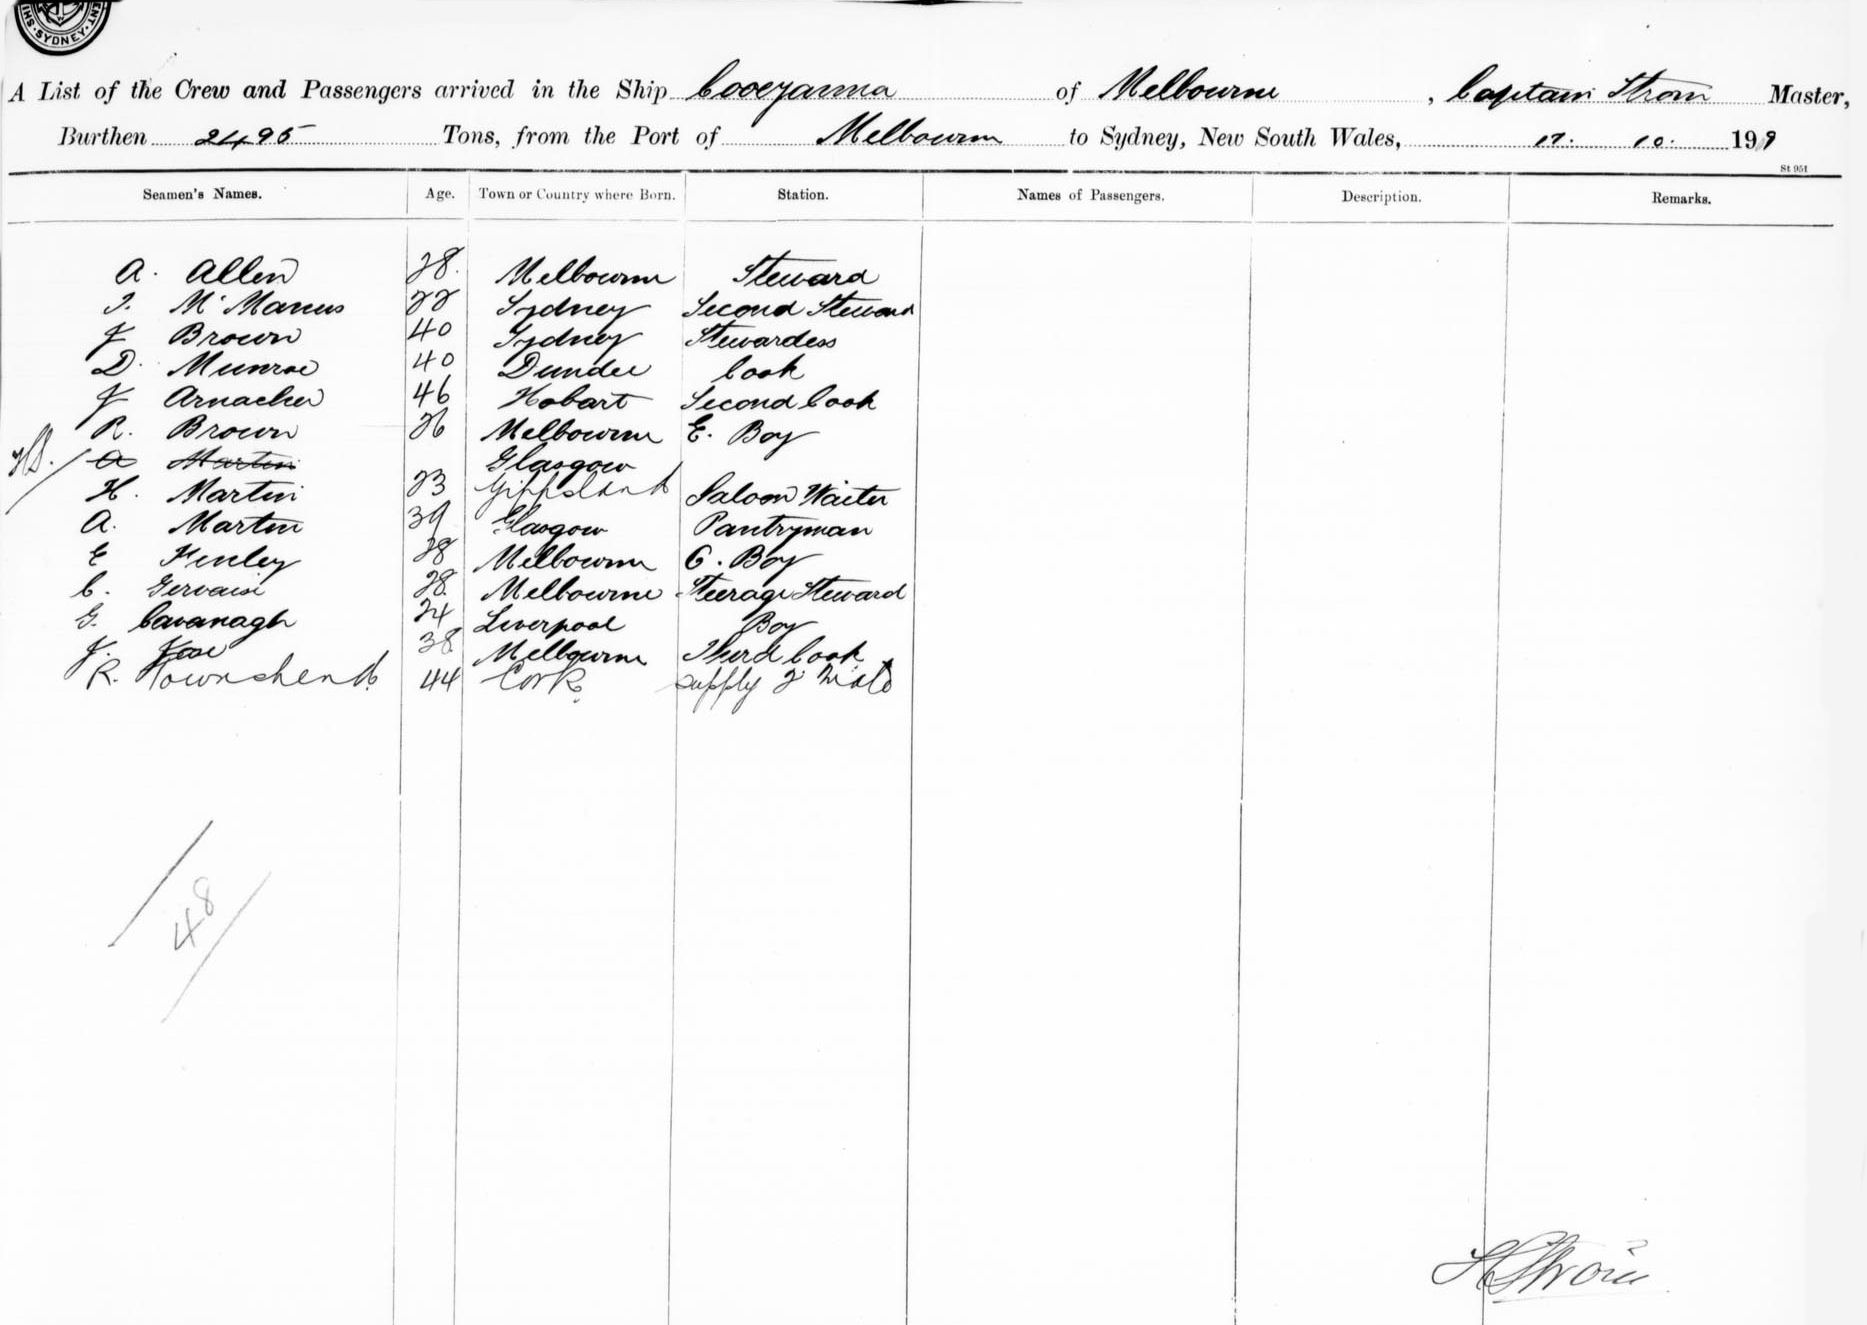 SYDNEY
A List of the Crew and Passengers arrived in the Ship Cooeyanna of Melbourne, Captain Strom Master,
Burthen 2495 Tons, from the Port of Melbourne to Sydney, New South Wales, 17. 10. 199
St 951
Seamen's Names. Age. Town or Country where Born. Station. Names of Passengers. Description. Remarks.
A. Allen 28. Melbourne Steward
J. McManus 22 Sydney Second Steward
J Brown 40 Sydney Stewardess
D. Munroe 40 Dundee Cook
J Arnacher 46 Hobart Second Cook
R. Brown 26 Melbourne E. Boy
A Martin Glasgow
H. Martin 23 Gippsland Saloon Waiter
A. Martin 39 Glasgow Pantryman
E Fenley 28 Melbourne C. Boy
C. Gervaise 28. Melbourne Steerage Steward
G. Cavanagh 24 Liverpool Boy
J. Jose 38. Melbourne Third Cook
R. Townshend. 44 Cork. supply 2 Mate
48
H Strom